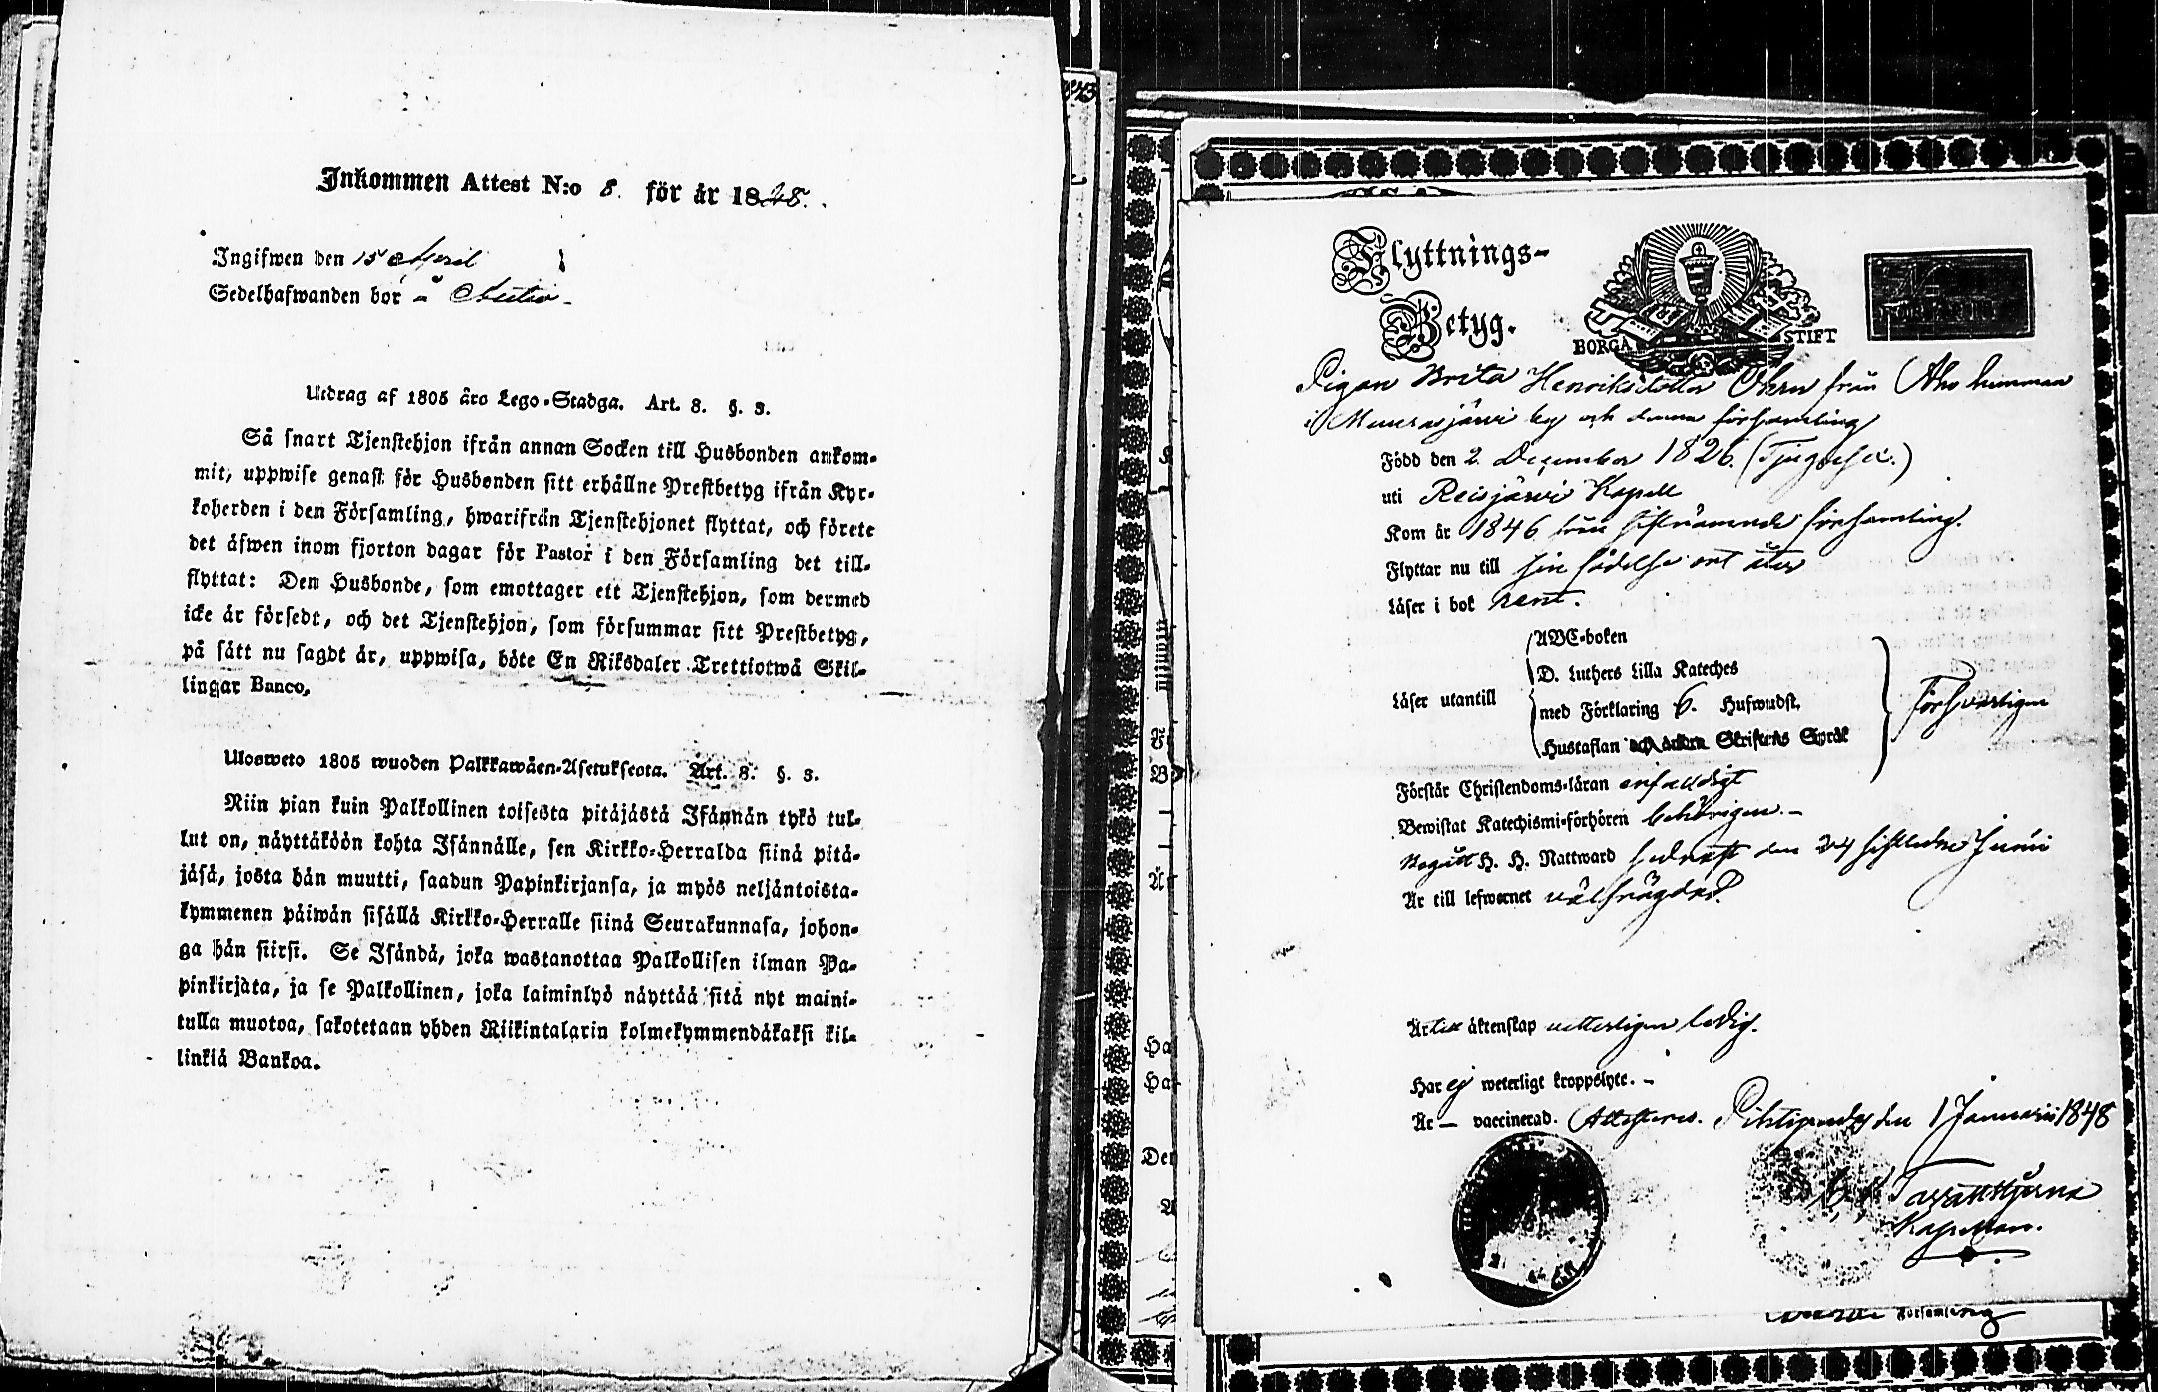 Inkommen Attest N:o 8. för år 1848.
Ingifwen den 15 April
Sedelhafwanden bor å
Utdrag af 1805 års Lego-Stadga. Art. 8. §. 3.
Så snart Tjenstehjon ifrån annan Socken till Husbonden ankom-
mit, uppwise genast för Husbonden sitt erhållne Prestbetyg ifrån Kyr-
koherden i den Församling, hwarifrån Tjenstehjonet flyttat, och förete
det äfwen inom fjorton dagar för Pastor i den Församling det till-
flyttat: Den Husbonde, som emottager ett Tjenstehjon, som dermed
icke är försedt, och det Tjenstehjon, som försummar sitt Prestbetyg,
på sätt nu sagdt är, uppwisa, böte En Riksdaler Trettiotwå Skil-
lingar Banco.
Ulosweto 1805 wuoden Palkkawäen-Asetuksesta. Art. 8. §. 3.
Niin pian kuin Palkollinen toisesta pitäjästä Isännän tykö tul-
lut on, näyttäköön kohta Isännälle, sen Kirkko-Herralda siinä pitä-
jäsä, josta hän muutti, saadun Papinkirjansa, ja myös neljäntoista-
kymmenen päiwän sisällä Kirkko-Herralle siinä Seurakunnasa, johon-
ga hän siirsi. Se Isändä, joka wastanottaa Palkollisen ilman Pa-
pinkirjata, ja se Palkollinen, joka laiminlyö näyttää sitä nyt maini-
tulla muotoa, sakotetaan yhden Riikintalarin kolmekymmendäkaksi kil-
linkiä Bankoa.
Flyttnings-
Betyg.
BORGÅ STIFT
Pigan Brita Henriksdotter från Aho hemman
i Muurasjärvi by och denna församling
Född den 2 December 1826. (Tjugosex.)
uti Reisjärvi Kapell
Kom år 1846 från sistnämnde församling.
Flyttar nu till sin födelse ort åter
Läser i bok rent.
ABC-boken
D. Luthers Lilla Kateches
Läser utantill
med Förklaring 6. Hufwudst.
Försvarligen
Hustaflan och andra Skriftens Språk
Förstår Christendoms-läran enfaldigt
Bewistat Katechismi-förhören behörigen.-
Begått H. H. Nattward sednast den 24 sistledne Junii
Är till lefwernet välfrägdad.
Är till äktenskap vetterligen ledig.
Har ej weterligt kroppslyte. -
Är - vaccinerad. Attesteras. Pihtipudas den 1 Januarii 1848
Kapellan.
Församling